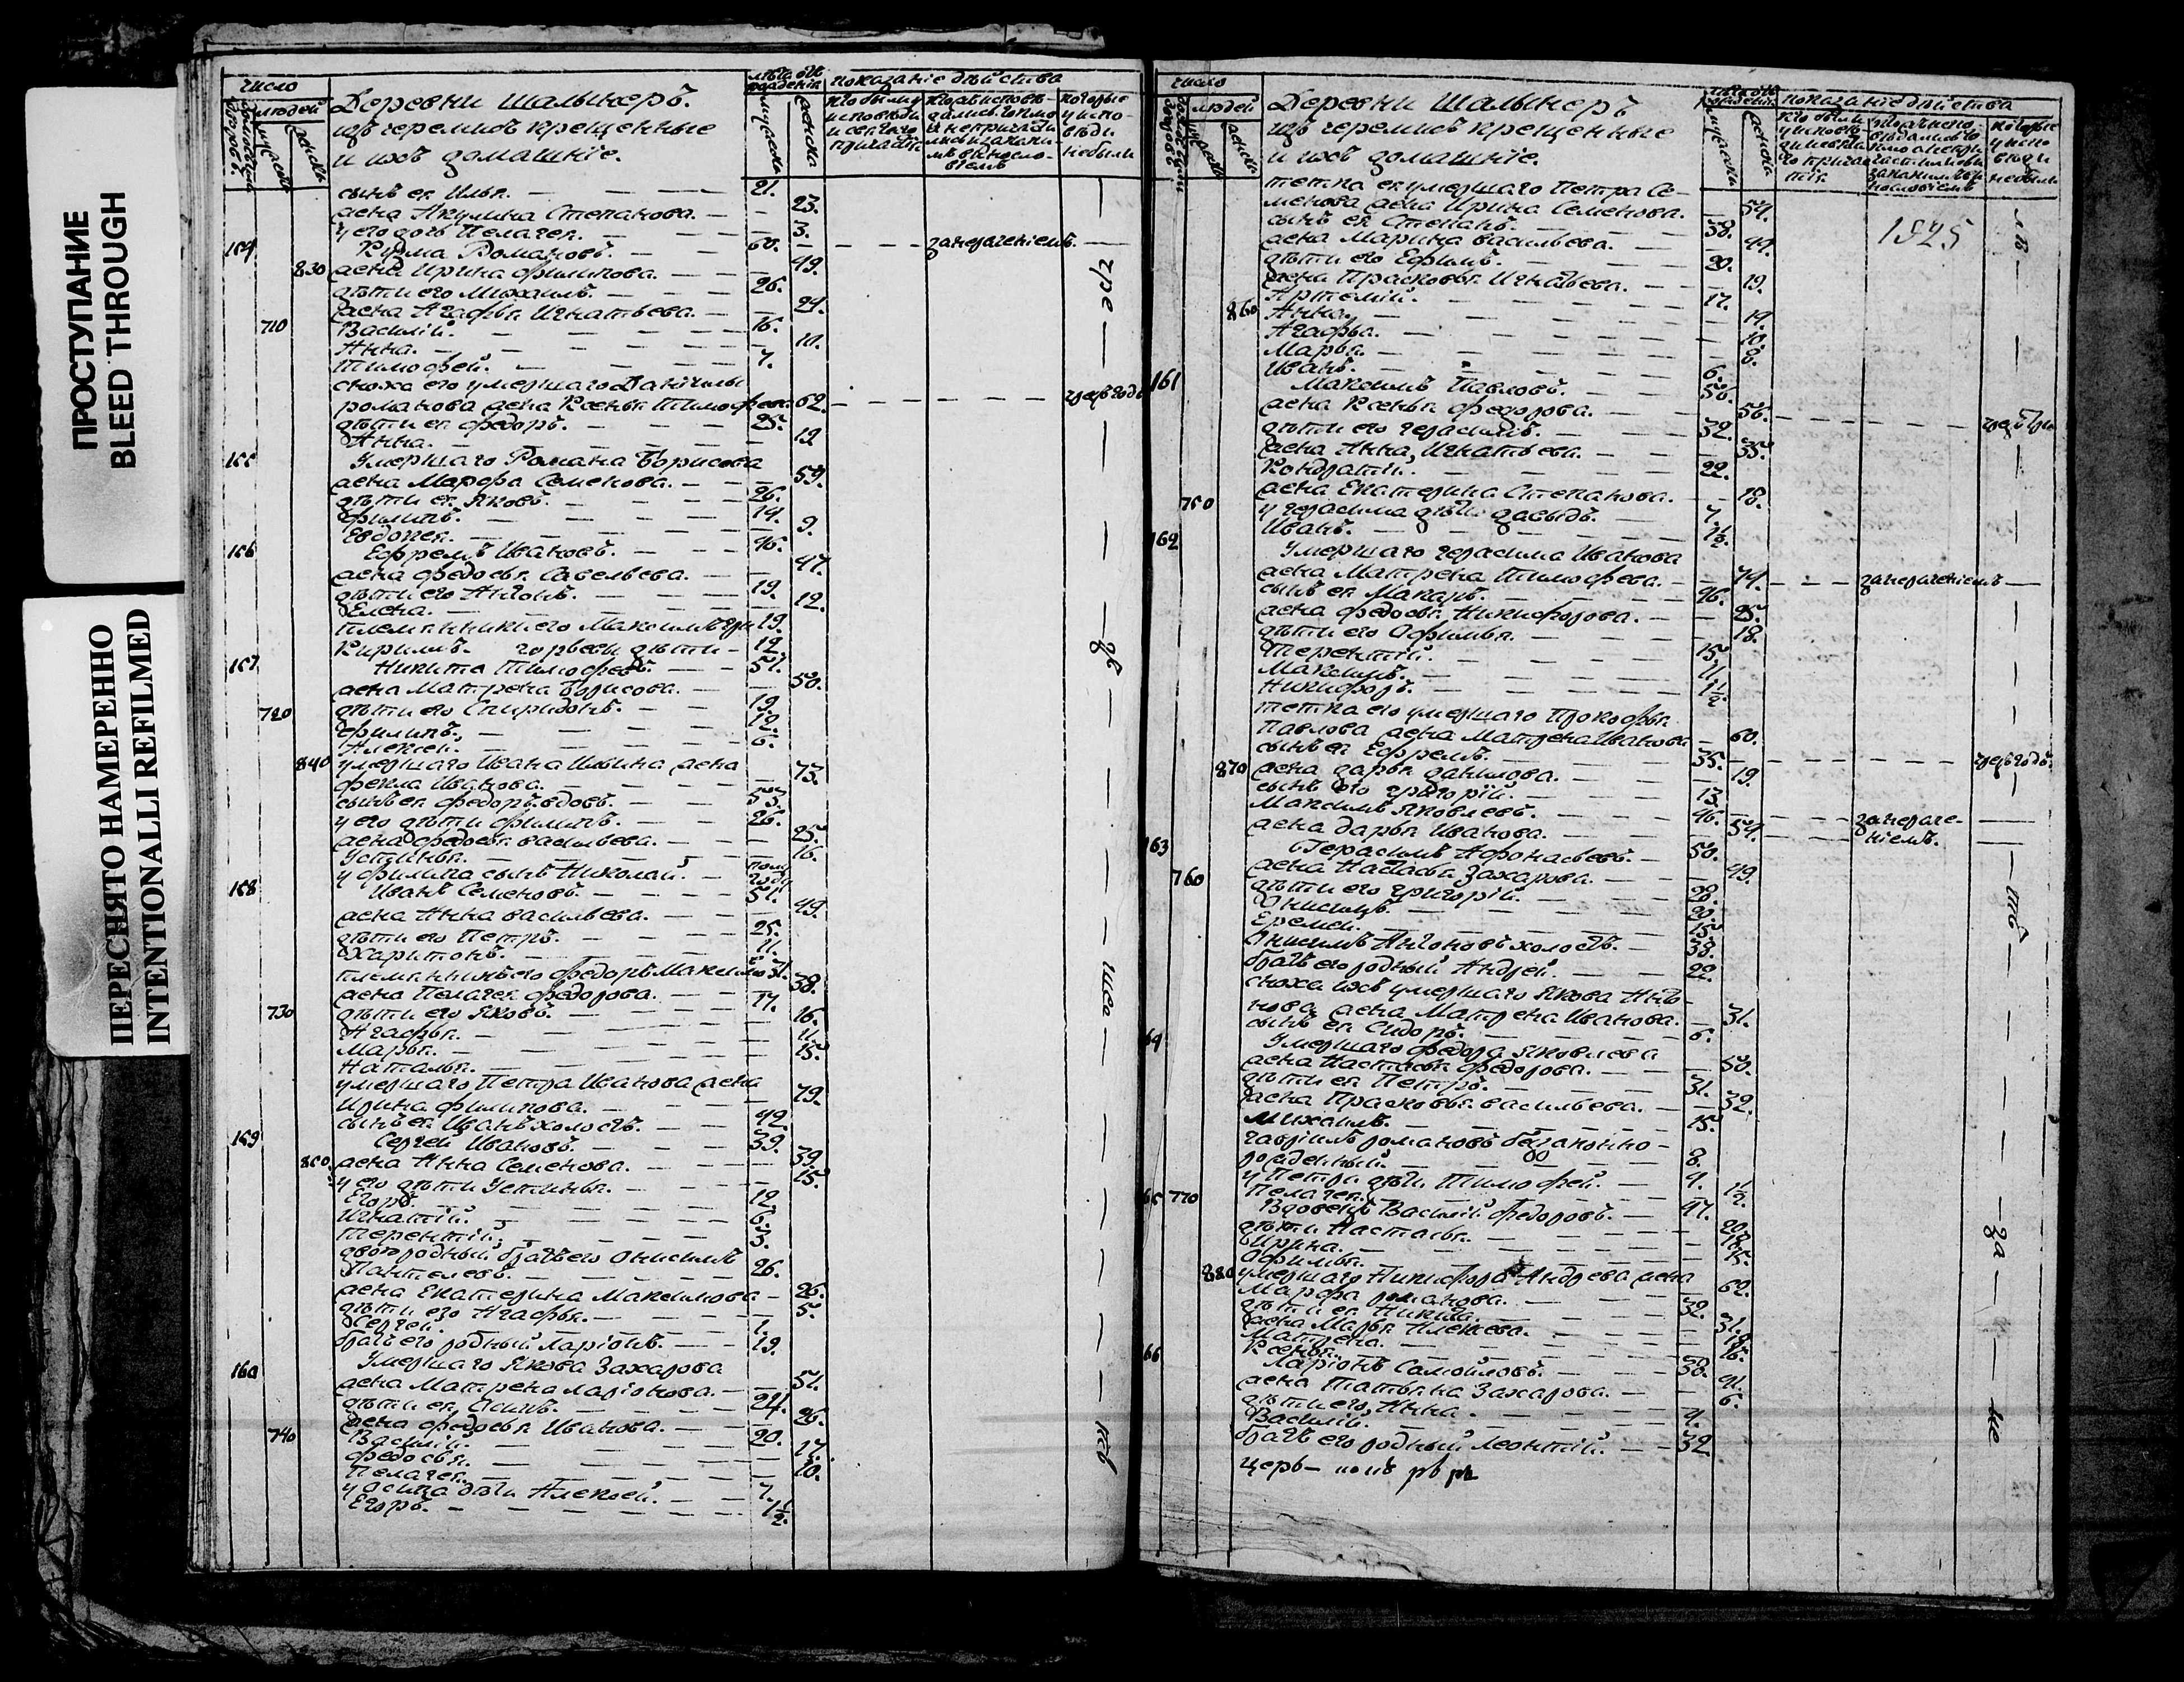 ПРОСТУПАНИЕ
BLEED THROUGH
ПЕРЕСНЯТО НАМЕРЕННО
INTENTIONALLI REFILMED
число
людей
Деревни Шалынкеръ.
изъ черемисъ крещенные
и ихъ домашніе.
показаніе действа
мужеска
женска
сынъ ея Илья. 21.
жена Акулина Степанова. 23.
у его дочь Пелагея. 3.
154 Кузма Романовъ. 60. занерачениемъ.
830 жена Ирина Филипова. 49.
дѣти его Михаилъ. 26.
жена Агафья Игнатьева. 24.
710 Василій. 16.
Анна. 10.
Тимофей. 7.
сноха его умершаго Данилы
романова жена Ксенья Тимофеева 62.
дѣти ея Федоръ. 25.
Анна. 19
155 Умершаго Романа Борисова
жена Марфа Семенова. 59.
дѣти ея Яковъ. 26.
Филипъ. 14.
Евдокея. 9.
156 Ефремъ Ивановъ. 46.
жена Федосья Савельева. 47.
дѣти его Антонъ. 19.
Елена. 12.
племянники его Максимъ 19.
Кирилъ. 12
157 Никита Тимофеевъ. 51.
жена Матрена Борисова. 50.
720 дѣти его Спиридонъ. 19.
Филипъ. 12.
Алексей. 6.
840 умершаго Ивана Ильина жена
Фекла Иванова. 73.
сынъ ея Федоръ вдовъ. 53.
у его дѣти Филипъ. 26.
жена Федосья васильева. 25.
Устинья. 16.
у Филипа сынъ Николай. полу
году
158 Иванъ Семеновъ. 51.
жена Анна васильева. 49.
дѣти его Петръ. 25.
Харитонъ. 11.
племянникъ его Федоръ Максимо 31.
жена Пелагея Федорова. 38.
730 дѣти его Яковъ. 17.
Агафья. 16.
Марья. 11.
Наталья. 15.
умершаго Петра Иванова жена
Ирина Филипова. 79.
сынъ ея Иванъ холостъ. 42.
159 Сергей Ивановъ. 39.
850 жена Анна Семенова. 39.
у его дѣти Устинья. 15.
Егоръ. 12.
Игнатій. 6.
Терентій. 3.
двоюродный братъ его Онисимъ
Пантелеевъ. 26.
жена Екатерина Максимова 26.
дѣти его Агафья. 5.
Сергей. 1.
братъ его родный Ларіонъ. 19.
160 Умершаго Якова Захарова
жена Матрена Ларіонова. 51.
дѣти ея, Осипъ. 24.
жена Федосья Иванова. 26.
740 Василій. 20.
Федосья. 17.
Пелагея. 10.
у осипа дѣти Алексей. 7.
Егоръ. 1½.
число
людей
Деревни Шалынкеръ
изъ черемисъ крещенные
и ихъ домашніе.
показаніе действа
1825
тетка ея умершаго Петра Се-
менова жена Ирина Семенова. 54.
сынъ ея Степанъ. 38.
жена Марина васильева. 44.
дѣти его Ефимъ. 20.
жена Прасковья Игнатьева. 19.
Артемій. 17.
860 Анна. 19.
Агафья. 10.
Марья. 8.
Иванъ. 6.
161 Максимъ Павловъ. 56.
жена Ксенья Федорова. 56.
дѣти его Герасимъ. 32.
жена Анна, Игнатьева. 35.
Кондратій. 22.
жена Екатерина Степанова. 18.
750 у герасима дѣти давыдъ. 7.
Иванъ. 1½
162 Умершаго герасима Иванова
жена Матрена Тимофеева. 74. занерачениемъ
сынъ ея Макаръ. 46.
жена Федосья Никифорова. 25.
дѣти его Офимья. 18.
Терентій. 15.
Максимъ. 11.
Никифоръ. 1½
тетка его умершаго Прокофья
Павлова жена Матрена Иванова 60.
сынъ ея Ефремъ. 35.
870 жена дарья данилова. 19.
сынъ его григорій. 13.
Максимъ Яковлевъ. 46. занераче-
жена дарья Иванова. 54. ніемъ.
163 Герасимъ Афонасьевъ. 50.
760 жена Настасья Захарова. 49.
дѣти его григорій. 28.
Онисимъ. 20.
Еремей. 15.
Онисимъ Антоновъ холостъ. 33.
братъ его родный Андрей. 22.
сноха ихъ умершаго Якова Анто-
нова жена Матрена Иванова. 31.
сынъ ея Сидоръ. 6.
64 Умершаго Федора Яковлева
жена Настасья Федорова. 50.
дѣти ея Петръ. 31.
жена Прасковья васильева. 32.
Михаилъ. 15.
гаврилъ романовъ беззаконно-
рожденный. 8.
у Петра дѣти Тимофей. 4.
Пелагея. 1½.
65 770 Вдовецъ Василій Федоровъ. 47.
дѣти Настасья. 20.
Ирина.
Офимья. 15.
880 умершаго Никифора Андреева жена
Марфа романова. 62.
дѣти ея Никита. 32.
жена Марья Алексеева. 31.
Матрена.
Ксенья. 16.
66 Ларіонъ Самойловъ. 50.
жена Татьяна Захарова. 41.
дѣти его, Анна. 6.
Василій. 4.
братъ его родный Леонтій. 32.